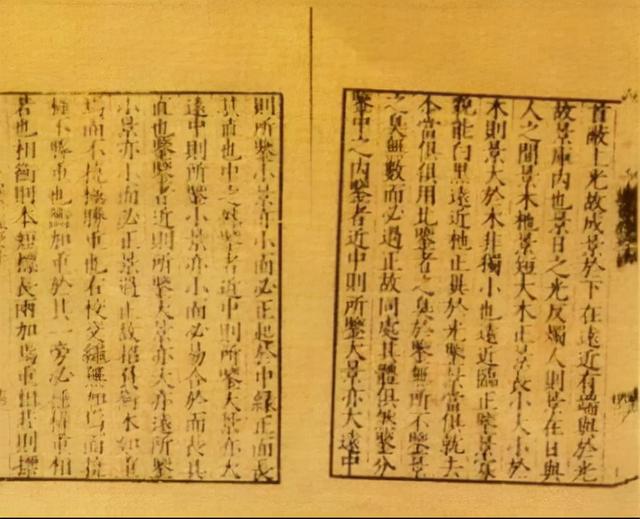 首敝上光故成景於下在遠近有端與於光
故景庫內也景日之光反燭人則景在日與
人之間景木柂景短大木正景長小大小於
木則景大於木非獨小也遠近臨正鑒景寡
貌能白黑遠近柂正異於光鑒景當俱就去
尒當俱俱用北鑒者之臭於鑒無所不鑒景
之臭無數而必過正故同處其體俱然鑒分
鑒中之內鑒者近中則所鑒大景亦大遠中
則所鑒小景亦小而必正起於中緣正而長
其直也中之外鑒者近中則所鑒大景亦大
遠中則所鑒小景亦小而必易合於而長其
直也鑒鑒者近則所鑒大景亦大亦遠所鑒
小景亦小而必正景過正故招負衡木如重
焉而不撓極勝重也右校交繩無加焉而撓
極不勝重也衡加重於其一旁必捶權重相
若也相衡則本短標長兩加焉重相若則標